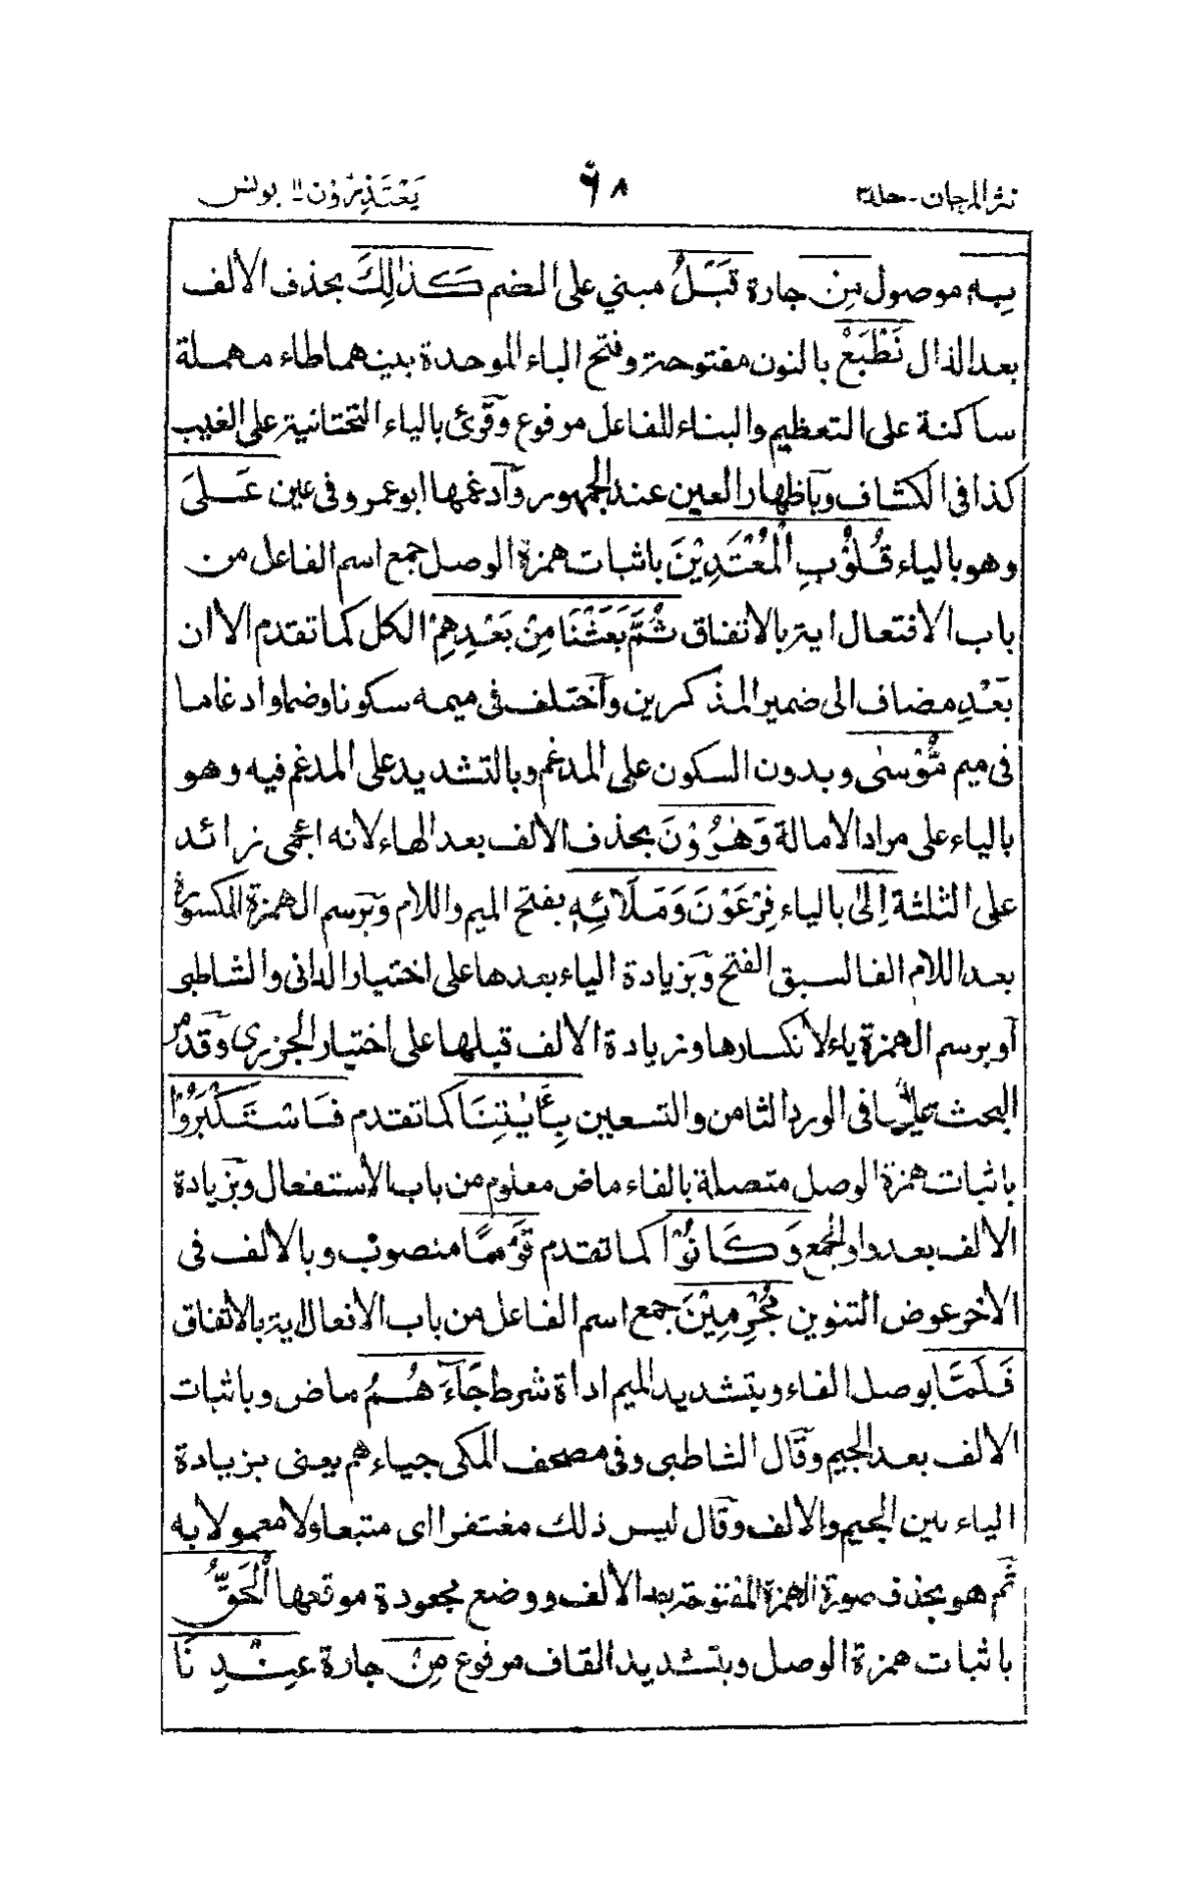 نثر المرجان - جلد٣ ٦٨ يَعْتَذِرُوْنَ ١١ يونس
بِهٖ موصول مِنْ جارة قَبْلُ مبني على الضم كَذٰلِكَ بحذف الالف
بعد الذال نَطْبَعُ بالنون مفتوحة وفتح الباء الموحدة بينهما طاء مهملة
ساكنة على التعظيم والبناء للفاعل مرفوع وقرئ بالياء التحتانية على الغيب
كذا في الكشاف وباظهار العين عند الجمهور وآدغمها ابو عمرو في عين عَلىٰ
وهو بالياء قُلُوْبِ الْمُعْتَدِيْنَ باثبات همزة الوصل جمع اسم الفاعل من
باب الافتعال اية بالاتفاق ثُمَّ بَعَثْنَا مِنْ بَعْدِهِمْ الكل كما تقدم الا ان
بَعْدِ مضاف الى ضمير المذكرين وآختلف في ميمه سكونا وضما وادغاما
في ميم مُّوْسٰى وبدون السكون على المدغم وبالتشديد على المدغم فيه وهو
بالياء على مراد الامالة وَهٰرُوْنَ بحذف الالف بعد الهاء لانه اعجمى زائد
على الثلثة اِلىٰ بالياء فِرْعَوْنَ وَمَلَائِهٖ بفتح الميم واللام وبرسم الهمزة المكسورة
بعد اللام الفا لسبق الفتح وبزيادة الياء بعدها على اختيار الدانى والشاطبى
آو برسم الهمزة ياء لانكسارها وزيادة الالف قبلها على اختيار الجزرى وقد مر
البحث عليها فى الورد الثامن والتسعين بِاٰيٰتِنَا كما تقدم فَاسْتَكْبَرُوْا
باثبات همزة الوصل متصلة بالفاء ماض معلوم من باب الاستفعال وبزيادة
الالف بعد واو الجمع وَكَانُوْا كما تقدم قَوْمًا منصوب وبالالف فى
الاخر عوض التنوين مُّجْرِمِيْنَ جمع اسم الفاعل من باب الافعال اية بالاتفاق
فَلَمَّا بوصل الفاء وبتشديد الميم اداة شرط جَآءَهُمُ ماض وباثبات
الالف بعد الجيم وقال الشاطبى وفى مصحف المكى جياءهم يعنى بزيادة
الياء بين الجيم والالف وقال ليس ذلك مغتفرا اى متبعا ولا معمولا به
ثم هو بحذف صورة الهمزة المفتوحة بعد الالف ووضع مجعودة موقعها الْحَقُّ
باثبات همزة الوصل وبتشديد القاف مرفوع مِنْ جارة عِنْدِنَا